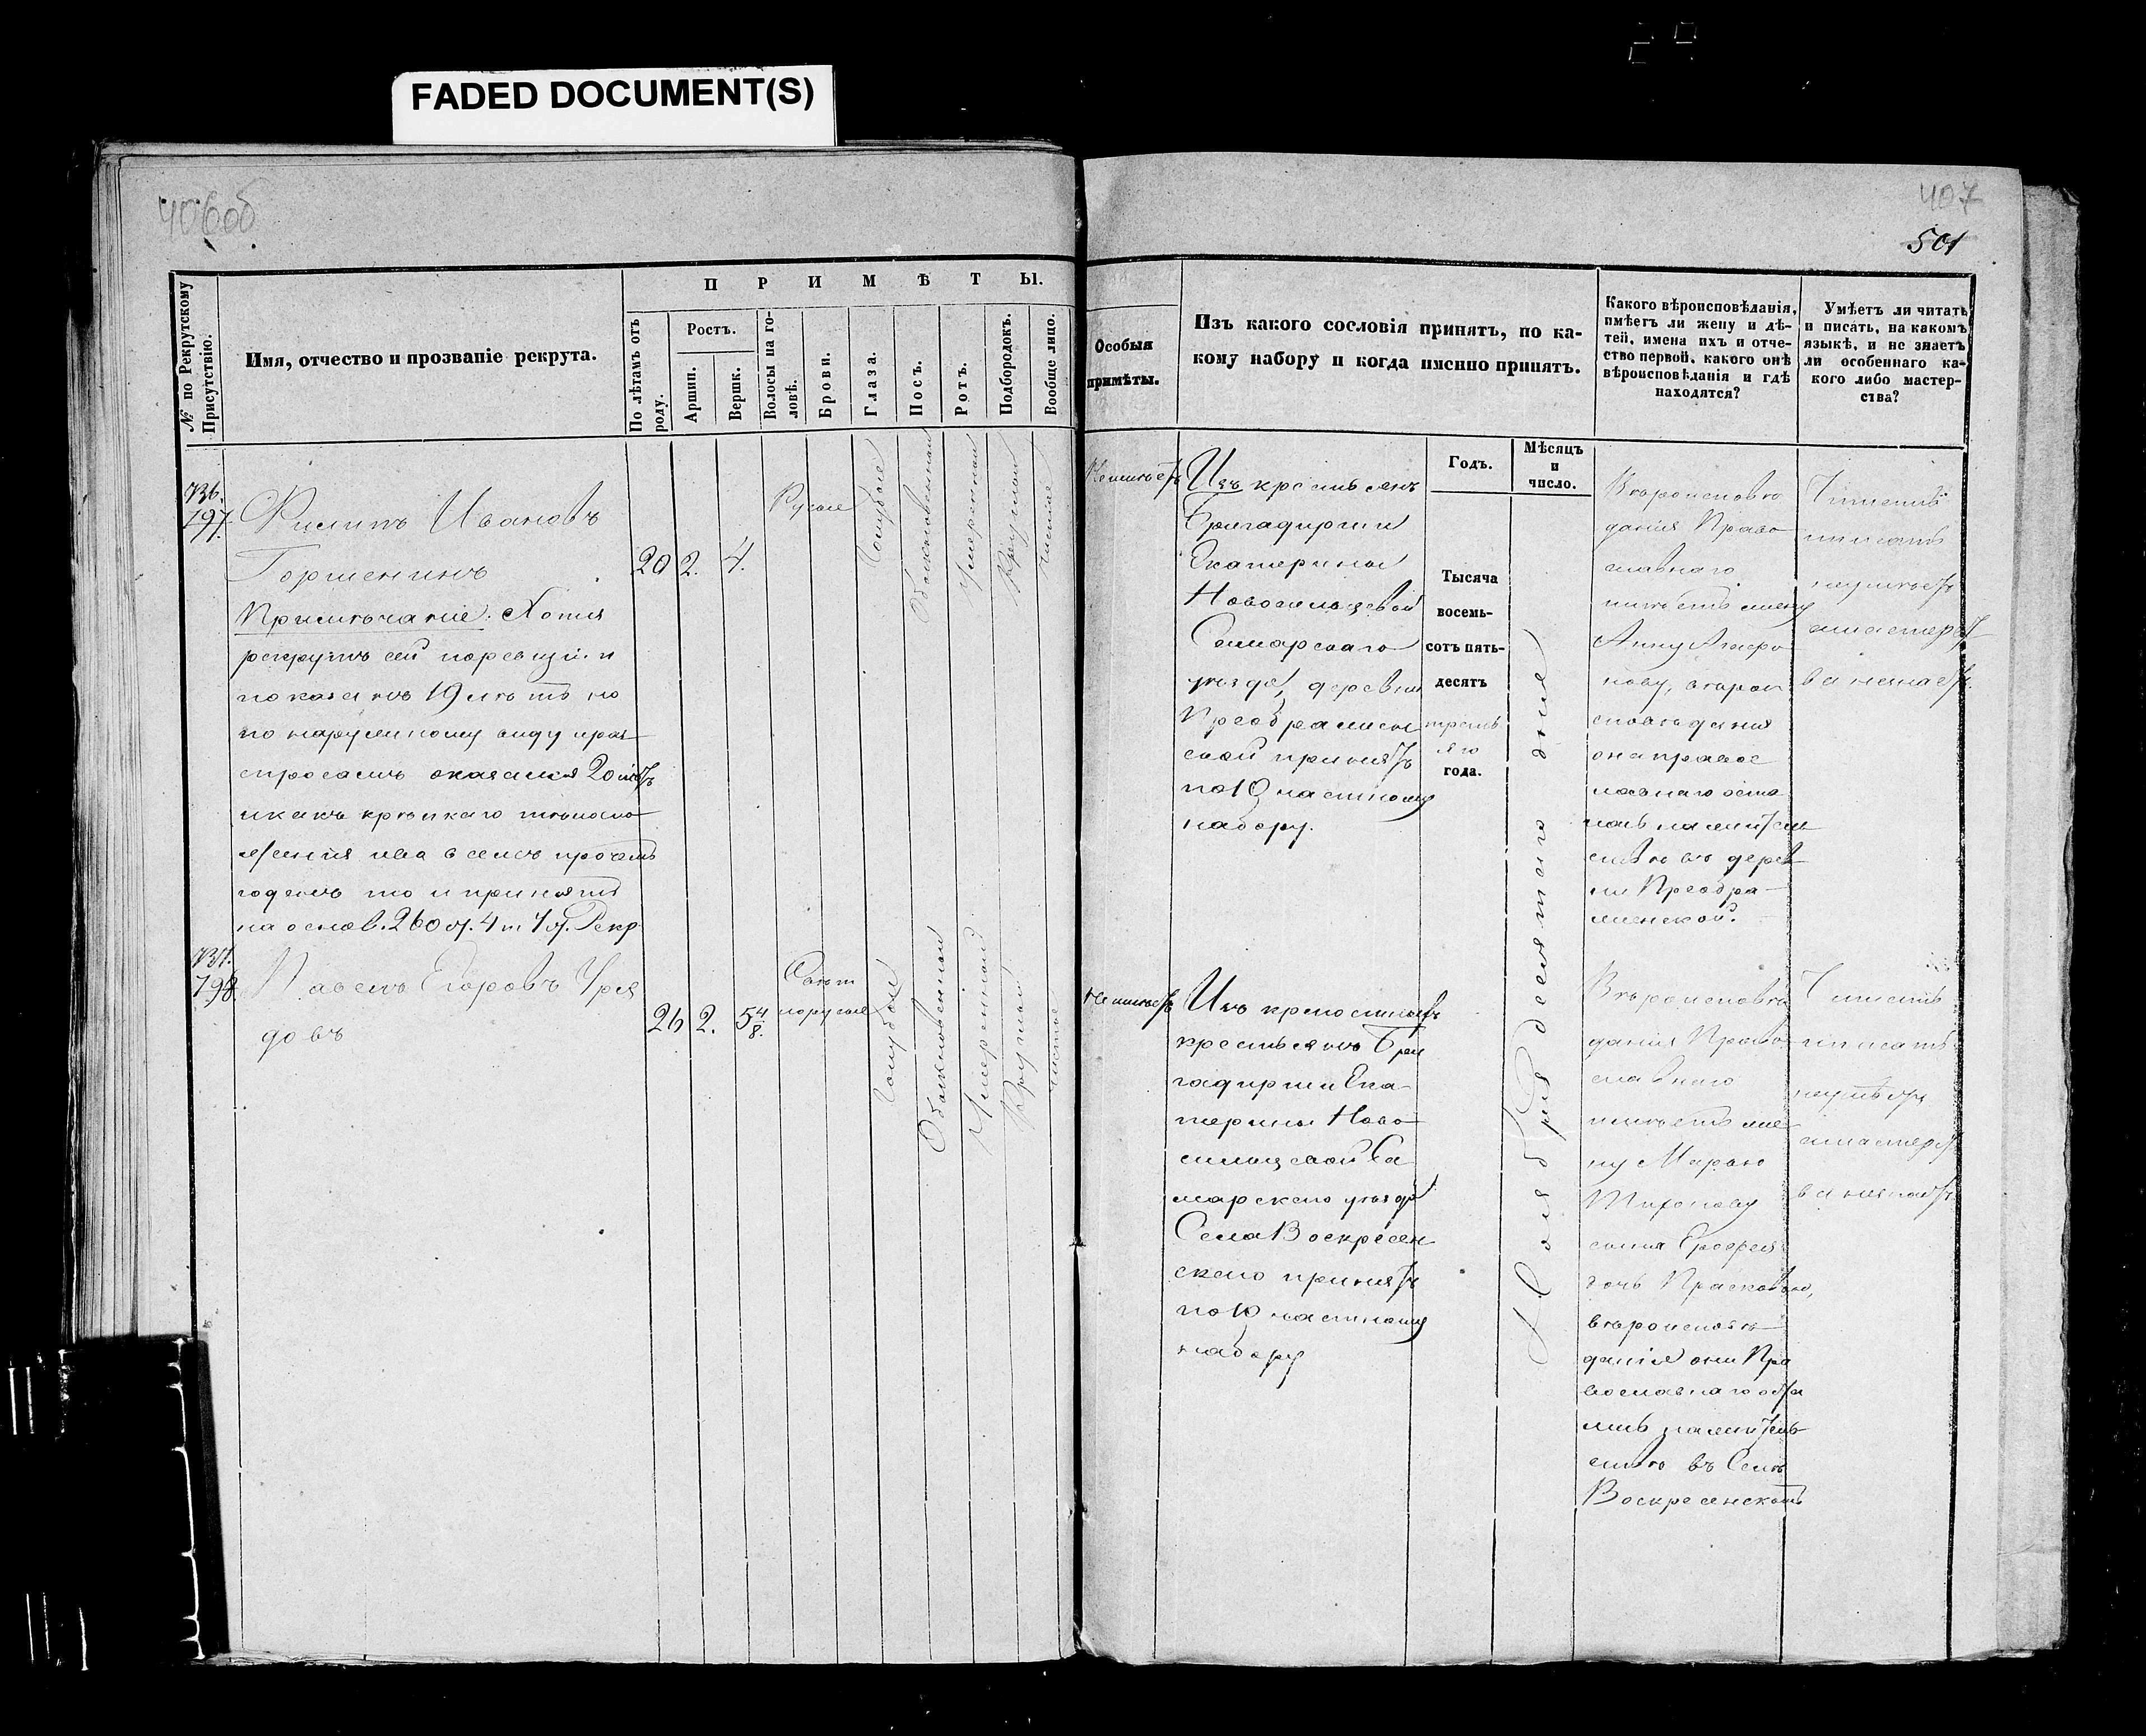 FADED DOCUMENT(S)
406об
407
501
ПРИМѢТЫ.
№ по Рекрутскому Присутствію.
Имя, отчество и прозваніе рекрута.
По лѣтамъ отъ роду.
Ростъ.
Аршин.
Вершк.
Волосы на головѣ.
Брови.
Глаза.
Носъ.
Ротъ.
Подбородокъ.
Вообще лицо.
Особыя
примѣты.
Изъ какого сословія принятъ, по ка-
кому набору и когда именно принятъ.
Какого вѣроисповѣданія,
имѣетъ ли жену и дѣ-
тей, имена ихъ и отче-
ство первой, какого онѣ
вѣроисповѣданія и гдѣ
находятся?
Умѣетъ ли читать
и писать, на какомъ
языкѣ, и не знаетъ
ли особеннаго ка-
кого либо мастер-
ства?
Годъ.
Мѣсяцъ
и
число.
797.
Филипъ Ивановъ
Горшенинъ
Примѣчаніе. Хотя
рекрутъ сей по ревизіи и
показанъ 19 лѣтъ но
по наружному виду и рас
спросамъ оказался 20 лѣтъ
и какъ крѣпкаго тѣлосло
женія и во всемъ прочемъ
годенъ то и принятъ
на основ. 260 ст. 4 т. Рекр
20
2.
4.
Русые
Голубые
Обыкновенный
Умеренный
Круглый
чистое
Неимѣетъ
Изъ крестьянъ
Бригадирши
Екатерины
Новосильцевой
Самарскаго
уѣзда, деревни
Преображен
ской принятъ
по 10 частному
набору.
Тысяча
восемь-
сотъ пять-
десятъ
треть
яго
года.
Ноября десятого дня
Вѣроисповѣ
данія Право
славнаго
имѣетъ жену
Анну Агафо
нову, вѣроис
повѣданія
она правос
лавнаго оста
лась на житель
ствѣ въ дерев
ни Преобра
женской.
Читать
писать
неумѣетъ
и мастерст
ва незнаетъ.
798.
Павелъ Егоровъ Уря
довъ
26
2.
5 4/8.
Свѣт
лорусые
Голубые
Обыкновенный
Умеренный
Круглый
чистое
Неимѣетъ
Изъ крепостныхъ
крестьянъ Бри
гадирши Ека
терины Ново
сильцевой Са
марскаго уѣзда
Села Воскресен
скаго принятъ
по 10 частному
набору
Вѣроисповѣ
данія Право
славнаго
имѣетъ же
ну Марью
Тихонову
сына Ерофея
дочь Прасковью,
вѣроисповѣ
данія они Пра
вославнаго оста
лись на житель
ствѣ въ Селѣ
Воскресенскомъ
Читать
писать
неумѣетъ
и мастерст
ва незнаетъ